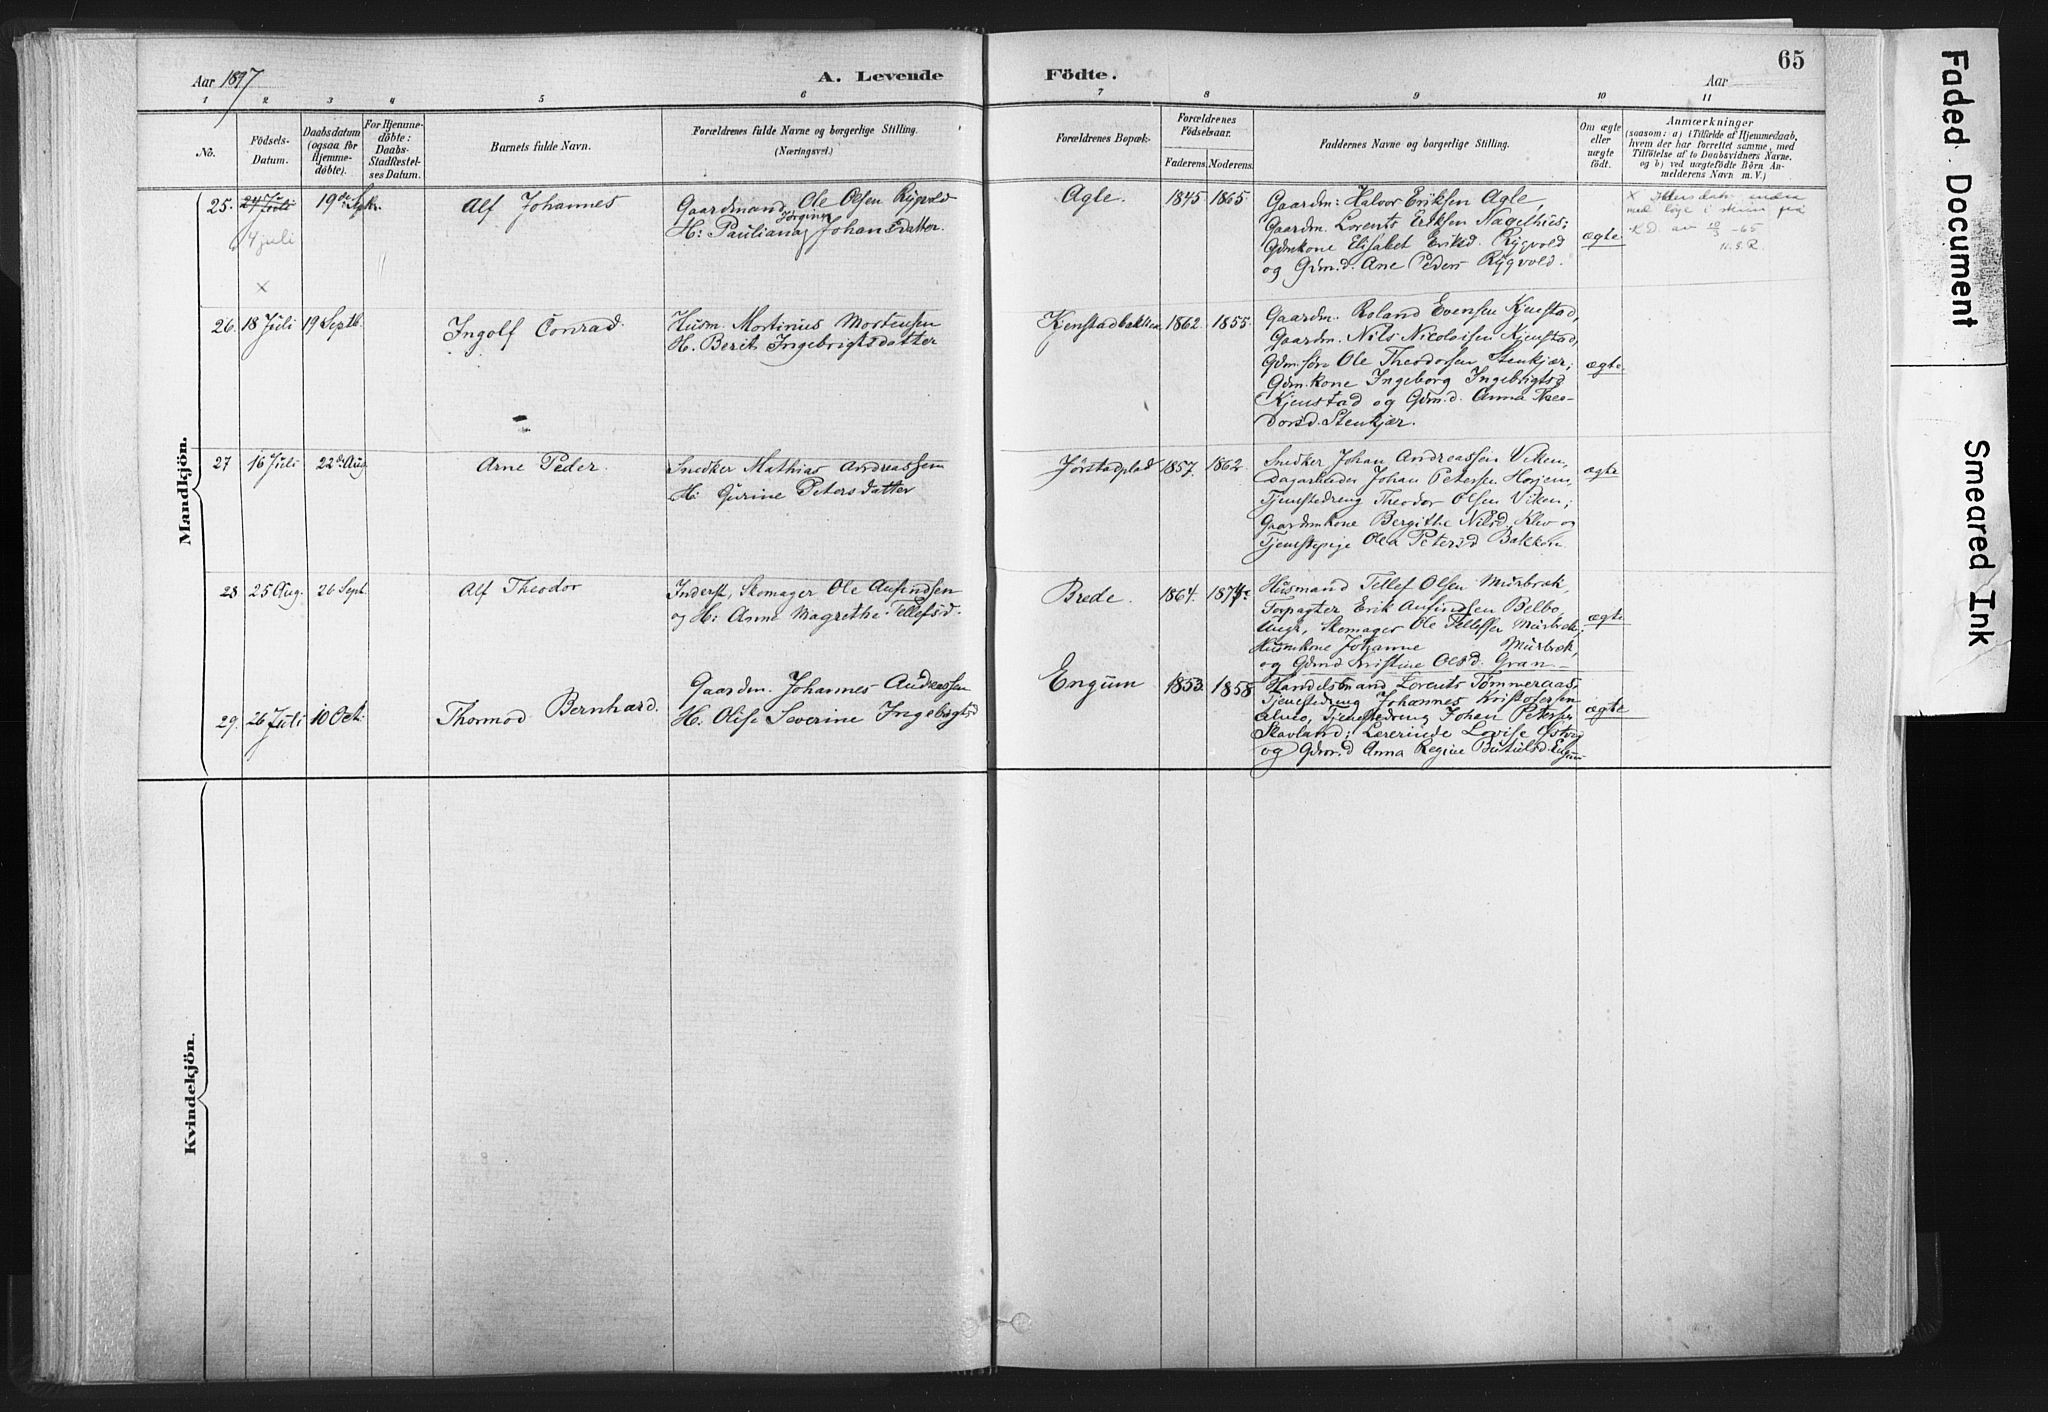 65
Aar 1897
A. Levende Födte.
Aar
1 2 3 4 5 6 7 8 9 10 11
No.
Födsels-
Datum.
Daabsdatum
(ogsaa for
Hjemme-
döbte).
For Hjemme-
döbte:
Daabs-
Stadfæstel-
ses Datum.
Barnets fulde Navn.
Forældrenes fulde Navne og borgerlige Stilling.
(Næringsvei.)
Forældrenes Bopæl.
Forældrenes
Födselsaar.
Faderens. Moderens.
Faddernes Navne og borgerlige Stilling.
Om ægte
eller
uægte
født.
Anmærkninger
(saasom: a) i Tilfælde af Hjemmedaab,
hvem der har forrettet samme, med
Tilföielse af to Daabsvidners Navne,
og b) ved uægtefödte Börn An-
melderens Navn m. V.)
Mandkjön.
25. 24 Juli
4 juli
x
19de Septr.
Alf Johannes
Gaardmand Ole Olsen Rygvold
H: Pauliana Jørgine Johansdatter.
Agle.
1845 1865.
Gaardm: Halvor Eriksen Agle,
Gaardm. Lorents Eriksen Nagelhus;
Gdmkone Elisabet Eriksd. Rygvold
og Gdm.d. Ane Peders Rygvold.
ægte
x
med i skrim fra
K.D. av 10/3 -65
26. 18 Juli 19 Septb.
Ingolf Conrad.
Husm. Mortinus Mortensen
H. Berit Ingebrigtsdatter
Kjenstadbakken
1862. 1855.
Gaardm. Roland Evensen Kjenstad,
Gaardm. Nils Nicolaisen Kjenstad,
Gdm.søn Ole Theodorsen Stenkjær;
Gdm.kone Ingeborg Ingebrigtsd
Kjenstad og Gdm.d. Anna Theo-
dorsd. Stenkjær.
ægte
27 16 Juli 22de Aug
Arne Peder.
Snedker Mathias Andreassen
H: Gurine Petersdatter
Jørstadplad
1857. 1862.
Snedker Johan Andreassen Viken,
Dagarbeider Johan Petersen Horjem,
Tjenestedreng Theodor Olsen Viken;
Gaardmkone Bergithe Nilsd. Klev og
Tjenestepige Petersd Bakken
ægte
28 25 Aug. 26 Sept.
Alf Theodor
Inderst, Skomager Ole Anfindsen
og H: Anne Magrethe Tellefsd.
Brede.
1864. 1874
Husmand Tellef Olsen Murbræk,
Forpagter Erik Anfindsen Belbo,
Ungk. Skomager Ole Tellefsen Murbræk,
Husmkone Johanne Murbræk,
og Gdmd Kristine Olsd. Gran-
ægte
29. 26 Juli 10 Oct.
Thormod Bernhard.
Gaardm. Johannes Andreassen
H. Olise Severine Ingebrigtsd
Engum
1853. 1858.
Handelsmand Lorents Tømmeraas,
Tjenestedreng Johannes Kristofersen
Tjenestedreng Johan Petersen
Skavland; Lærerinde Lovise
og Gdmd Anna Regine Engum
ægte
Kvindekjön.
Faded Document
Smeared Ink